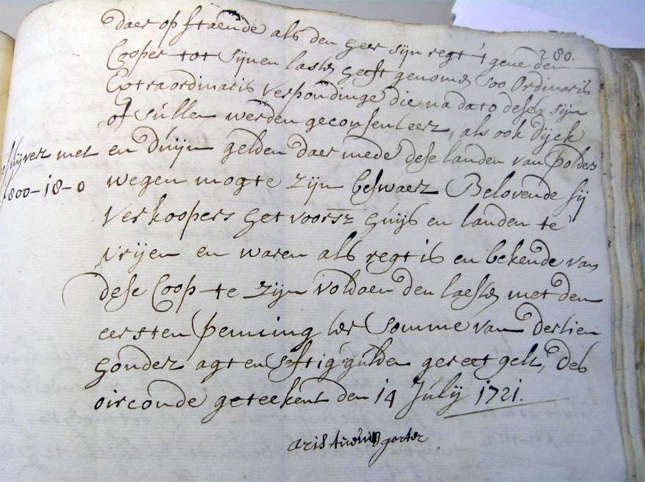 280.
daer op staende als den heer sijn regt 't gene den
Cooper tot sijnen laste heeft genomen soo Ordinaris
Extraordinaris verpondinge die na dato deses sijn
of sullen werden geconsenteer, als ook dijck
met en duijn gelden daer mede dese landen van polder
800-18-0 wegen mogte zijn beswaer Belovende sij
verkoopers het voorsz huijs en landen te
vrijen en waren als regt is en bekende van
dese Coop te zijn voldaen den laesten met den
eersten penning ter somme van dertien
honder agt en seftig gulden gereet gelt, des
oirconde geteekent den 14 Julij 1721.
aris gorter